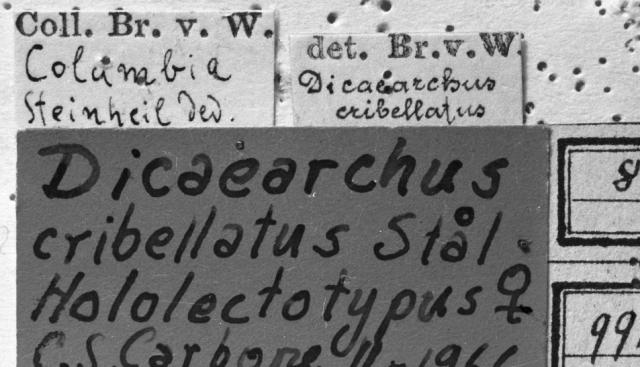 Coll. Br. v. W.
Columbia
Steinheil ded.
det. Br.v.W.
Dicaearchus
cribellatus
Dicaearchus
cribellatus Stål.
Hololectotypus ♀